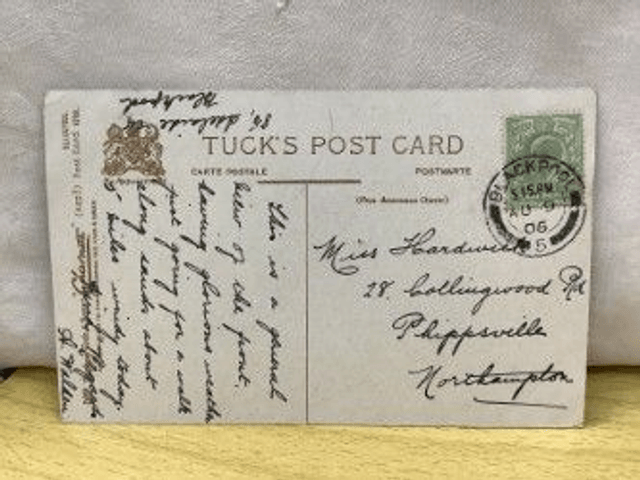 86, Adelaide St
Blackpool
TUCK'S POST CARD
CARTE POSTALE
POSTKARTE
(For Address Only)
BLACKPOOL
5.15 PM
AU 9
06
5
Miss Hardwick
28. Collingwood Rd
Phippsville
Northampton
This is a general
view of the front.
having glorious weather
just going for a walk
along sands about
5 miles windy today.